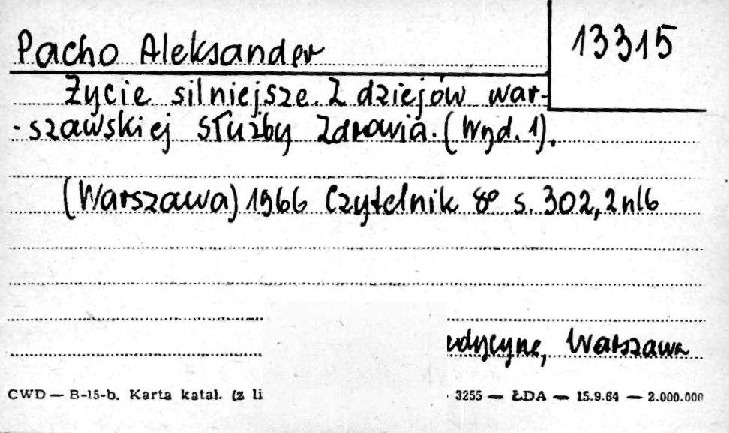 Pacho Aleksander
13315
Życie silniejsze. Z dziejów war-
szawskiej Służby Zdrowia. (Wyd. 1).
(Warszawa) 1966 Czytelnik 8° s. 302, 2nlb
Warszawa
CWD — B-15-b. Karta katal. (z li
3255 — ŁDA — 15.9.64 — 2.000.000